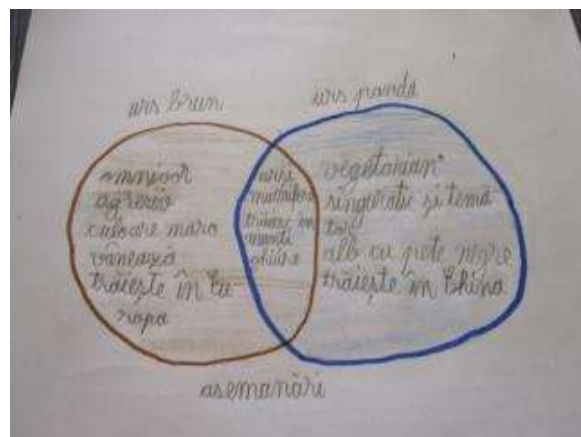 urs brun
urs panda
omnivor
agresiv
culoare maro
vânează
trăiește în Eu
ropa
urși
mamifere
trăiesc în
munți
vegetarian
singuratic și temă
tor
alb cu pete negre
trăiește în China
asemănări